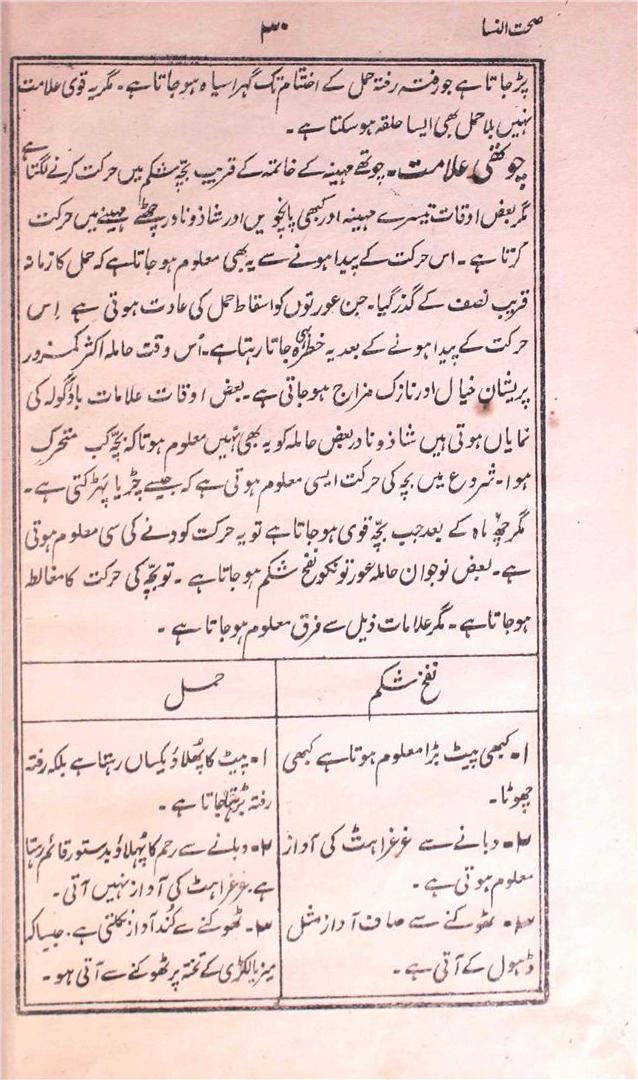 صحت النسا
۳۰
پڑجاتا ہے جو رفتہ رفتہ حمل کے اختتام تک گہرا سیاہ ہوجاتا ہے۔ مگر یہ قوی علامت
نہیں بلا حمل بھی ایسا حلقہ ہوسکتا ہے۔
چوتھی علامت۔ چوتھے مہینہ کے خاتمہ کے قریب بچّہ شکم میں حرکت کرنے لگتا ہے
مگر بعض اوقات تیسرے مہینہ اور کبھی پانچویں اور شاذ و نادر چھٹے مہینے میں حرکت
کرتا ہے۔ اس حرکت کے پیدا ہونے سے یہ بھی معلوم ہوجاتا ہے کہ حمل کا زمانہ
قریب نصف کے گذر گیا۔ جن عورتوں کو اسقاط حمل کی عادت ہوتی ہے اِس
حرکت کے پیدا ہونے کے بعد یہ خطرہ بھی جاتا رہتا ہے۔ اُس وقت حاملہ اکثر کمزور
پریشان خیال اور نازک مزاج ہوجاتی ہے۔ بعض اوقات علامات باؤگولہ کی
نمایاں ہوتی ہیں شاذ و نادر بعض حاملہ کو یہ بھی نہیں معلوم ہوتا کہ بچّہ کب متحرک
ہوا۔ شروع میں بچہ کی حرکت ایسی معلوم ہوتی ہے کہ جیسے چڑیا پھڑکتی ہے۔
مگر چھ ماہ کے بعد جب بچّہ قوی ہوجاتا ہے تو یہ حرکت کودنے کی سی معلوم ہوتی
ہے۔ بعض نوجوان حاملہ عورتونکو نفخ شکم ہوجاتا ہے۔ تو بچّہ کی حرکت کا مغالطہ
ہوجاتا ہے۔ مگر علامات ذیل سے فرق معلوم ہوجاتا ہے۔
نفخ شکم
۱۔ کبھی پیٹ بڑا معلوم ہوتا ہے کبھی
چھوٹا۔
۲۔ دبانے سے غرغراہٹ کی آواز
معلوم ہوتی ہے۔
۳۔ ٹھوکنے سے صاف آواز مثل
ڈھول کے آتی ہے۔
حمل
۱۔ پیٹ کا پھُلاؤ یکساں رہتا ہے بلکہ رفتہ
رفتہ بڑھتا جاتا ہے۔
۲۔ دبانے سے رحم کا پھُلاؤ بدستور قائم رہتا
ہے غرغراہٹ کی آواز نہیں آتی۔
۳۔ ٹھوکنے سے کُند آواز نکلتی ہے۔ جیسا کہ
میز یا لکڑی کے تختہ پر ٹھوکنے سے آتی ہو۔